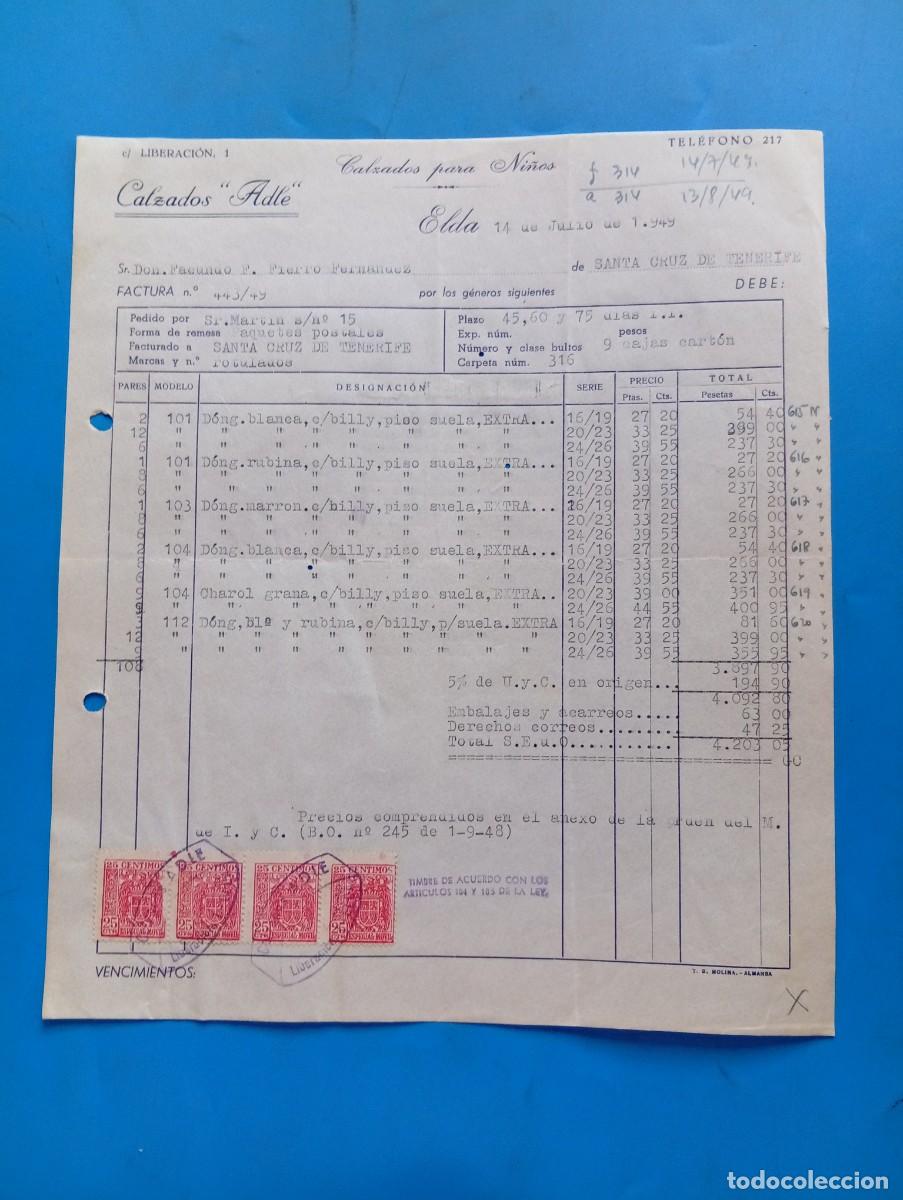 c/ LIBERACIÓN, 1
TELÉFONO 217
Calzados para Niños
f 314 14/7/49.
a 314 13/8/49.
Calzados "Adle"
Elda 14 de Julio de 1.949
Sr. Don. Facundo F. Fierro Fernandez de SANTA CRUZ DE TENERIFE
FACTURA n.º 443/49 por los géneros siguientes DEBE:
Pedido por Sr. Martin s/nº 15
Forma de remesa aquetes postales
Facturado a SANTA CRUZ DE TENERIFE
Marcas y n.º rotulados
Plazo 45,60 y 75 dias f.f.
Exp. núm. pesos
Número y clase bultos 9 cajas cartón
Carpeta núm. 316
PARES MODELO DESIGNACIÓN SERIE PRECIO TOTAL
Ptas. Cts. Pesetas Cts.
2 101 Dóng.blanca,c/billy,piso suela,EXTrA... 16/19 27 20 54 40 615 N
12 " " " " " " " 20/23 33 25 399 00 " "
6 " " " " " " " 24/26 39 55 237 30 " "
1 101 Dóng.rubina,c/billy,piso suela,EXTRA... 16/19 27 20 27 20 616 "
8 " " " " " " " 20/23 33 25 266 00 " "
6 " " " " " " " 24/26 39 55 237 30 " "
1 103 Dóng.marron.c/billy,piso suela,EXTRA... 16/19 27 20 27 20 617 "
8 " " " " " " " 20/23 33 25 266 00 " "
6 " " " " " " " 24/26 39 55 237 30 " "
2 104 Dóng.blanca,c/billy,piso suela,EXTRA... 16/19 27 20 54 40 618 "
8 " " " " " " " 20/23 33 25 266 00 " "
6 " " " " " " " 24/26 39 55 237 30 " "
9 104 Charol grana,c/billy,piso suela,EXTRA.. 20/23 39 00 351 00 619 "
9 " " " " " " " 24/26 44 55 400 95 " "
3 112 Dóng,blª y rubina,c/billy,p/suela.EXTRA 16/19 27 20 81 60 620 "
12 " " " " " " " " " 20/23 33 25 399 00 " "
9 " " " " " " " " " 24/26 39 55 355 95 " "
108 3.897 90
5% de U.y.C. en origen... 194 90
4.092 80
Embalajes y acarreos..... 63 00
Derechos correos......... 47 25
Total S.E.u.O............ 4.203 05
GC
Precios comprendidos en el anexo de la orden del M.
de I. y C. (B.O. nº 245 de 1-9-48)
25 CENTIMOS 25 CENTIMOS 25 CENTIMOS
ADLE ADLE
25 25 25 25
ESPECIAL MOVIL ESPECIAL MOVIL
Liberación Liberación
TIMBRE DE ACUERDO CON LOS
ARTICULOS 184 Y 185 DE LA LEY.
VENCIMIENTOS:
T. S. MOLINA.-ALMANSA
X
todocoleccion